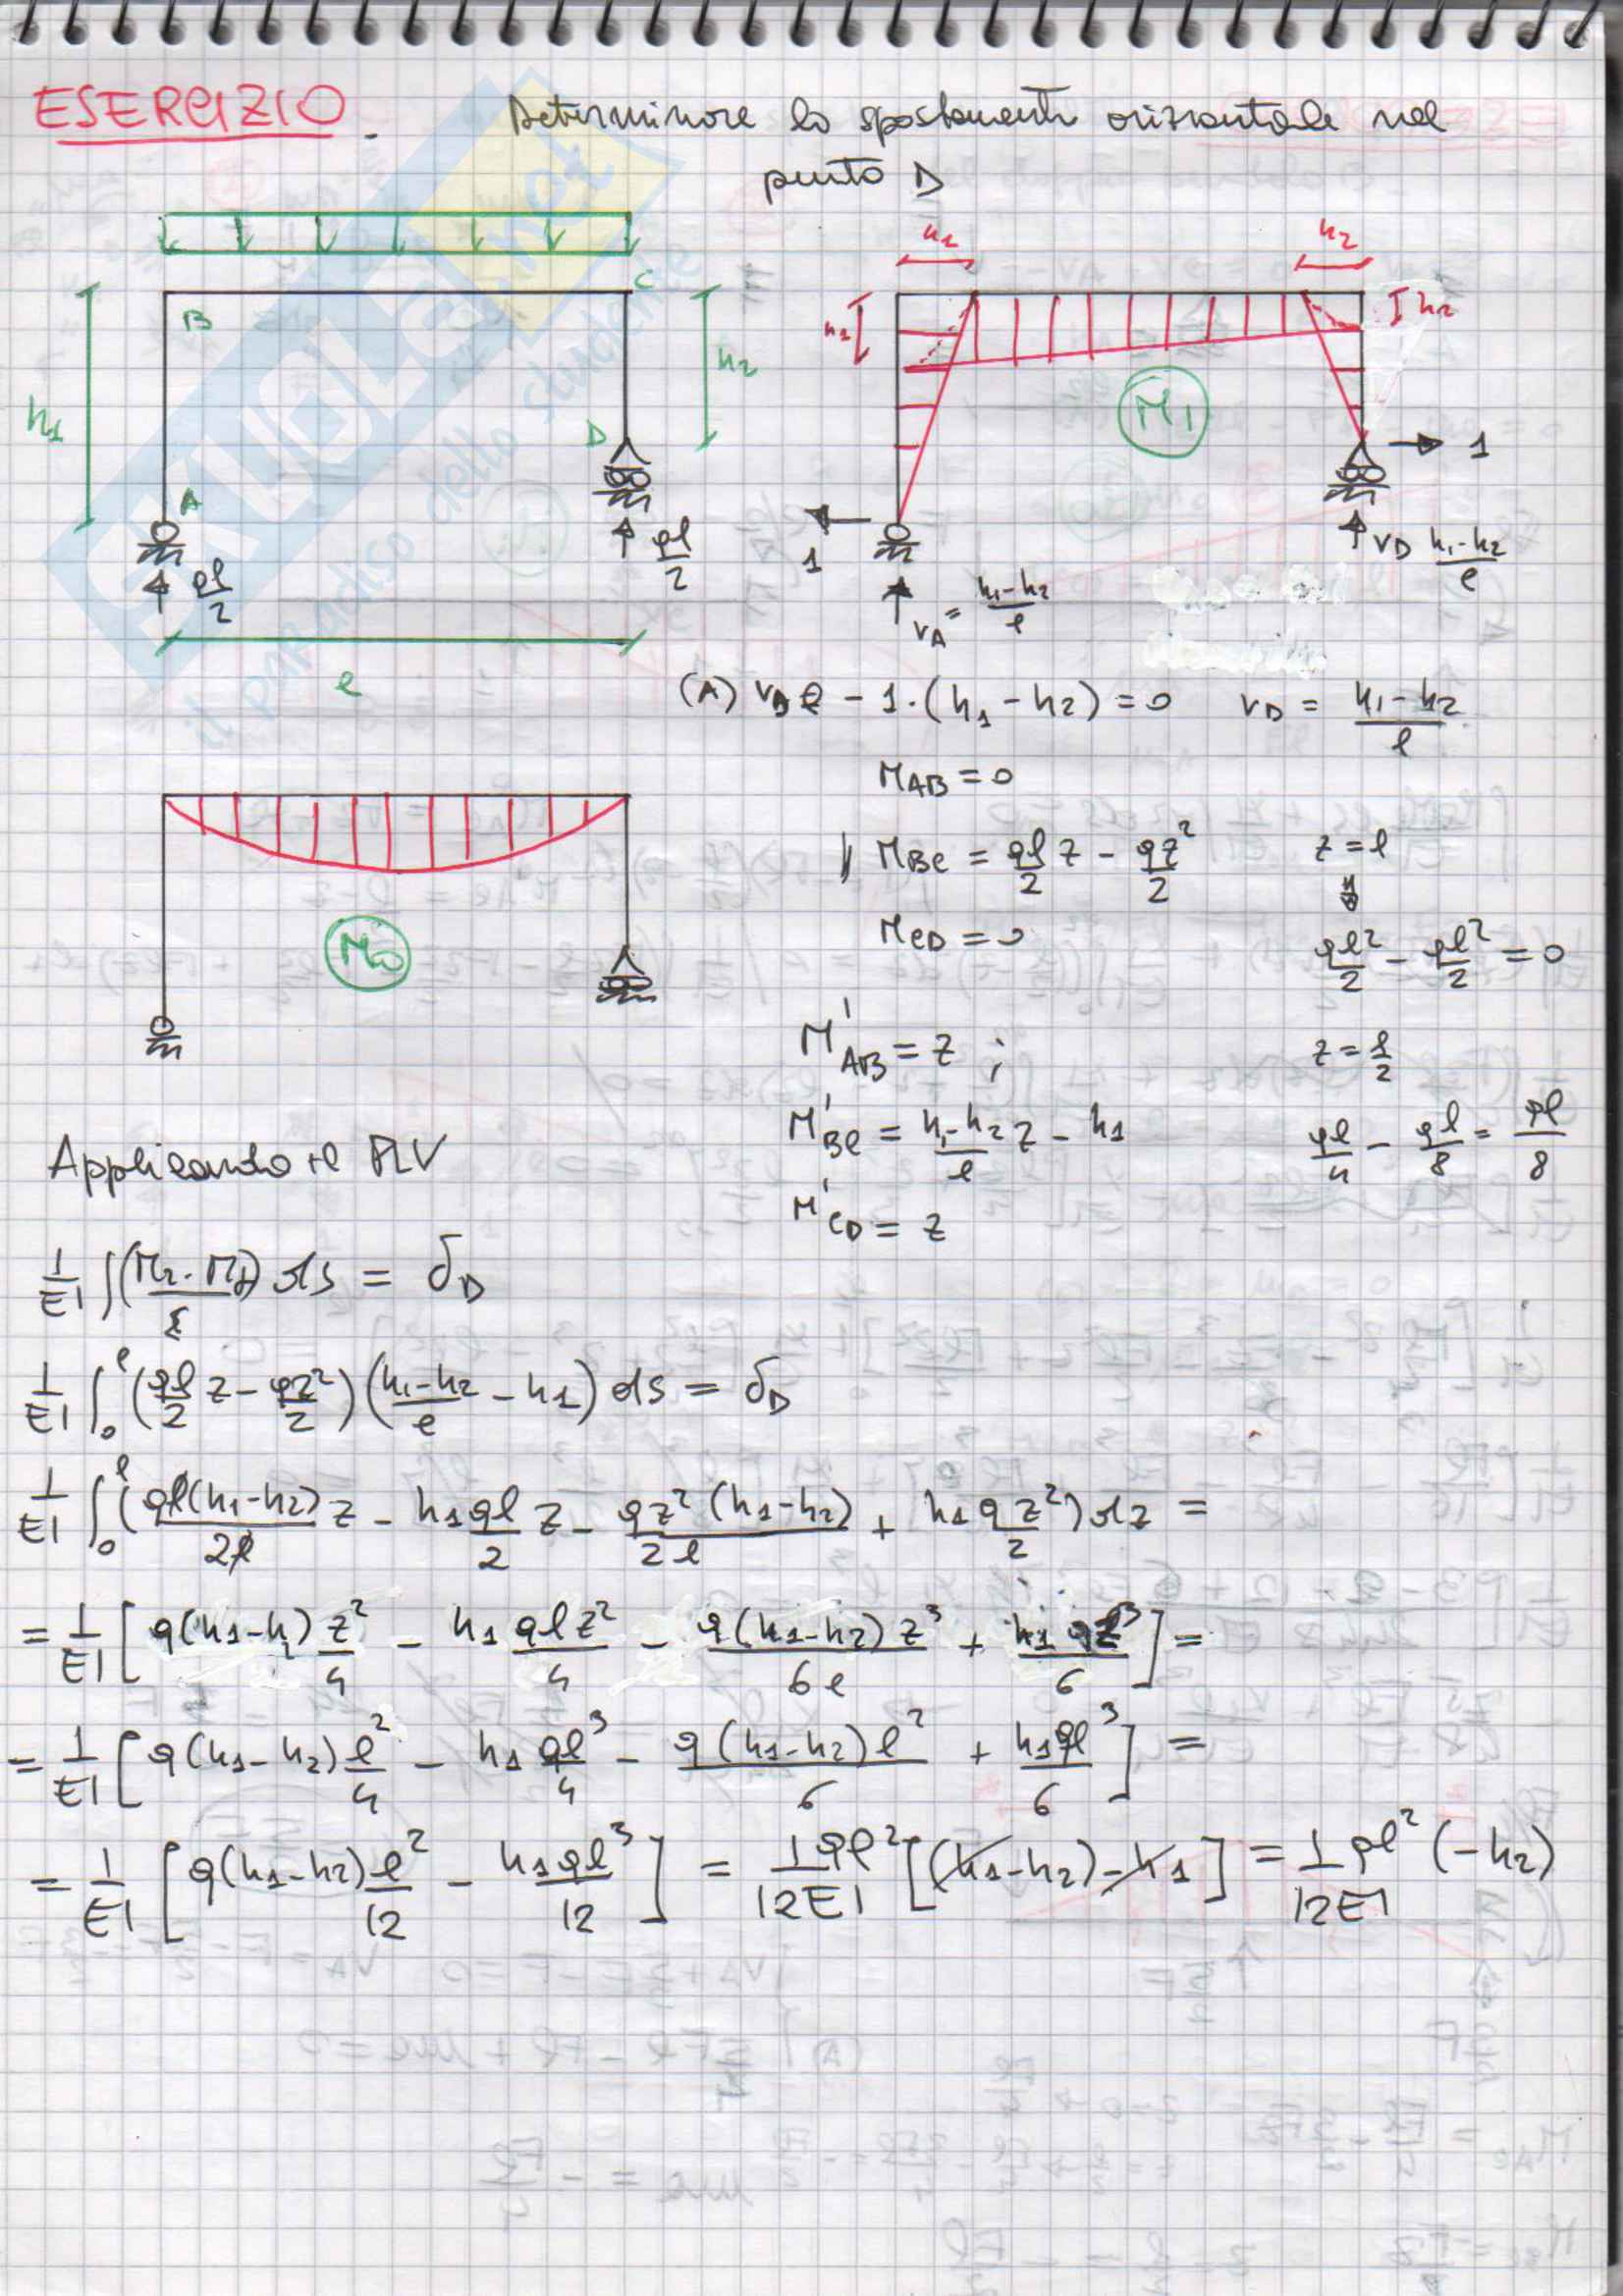 ESERCIZIO. Determinare lo spostamento orizzontale nel
punto D
B
C
h1
h2
A
D
ql/2
ql/2
l
h1
h2
h1
h2
M1
1
1
VA = h1-h2/l
VD h1-h2/l
(A) VD l - 1·(h1-h2) = 0 VD = h1-h2/l
MAB = 0
MBC = ql/2 z - qz²/2 z = l
MCD = 0 ql²/2 - ql²/2 = 0
M0
M'AB = z ; z = l/2
M'BC = h1-h2/l z - h1 ql/4 - ql/8 = ql/8
M'CD = z
Applicando il PLV
1/EI ∫ ds = δD
1/EI ∫0^l (ql/2 z - qz²/2)(h1-h2/l - h1) ds = δD
1/EI ∫0^l (ql(h1-h2)/2l z - h1ql/2 z - qz²(h1-h2)/2l + h1q z²/2) dz =
= 1/EI [q(h1-h) z²/4 - h1 qlz²/4 - q(h1-h2)z³/6l + h1 qz³/6] =
= 1/EI [q(h1-h2) l²/4 - h1 ql³/4 - q(h1-h2)l²/6 + h1ql³/6] =
= 1/EI [q(h1-h2) l²/12 - h1ql³/12] = 1ql²/12EI [(h1-h2)-h1] = 1/12EI ql² (-h2)
SKUOLA.net
il paradiso dello studente